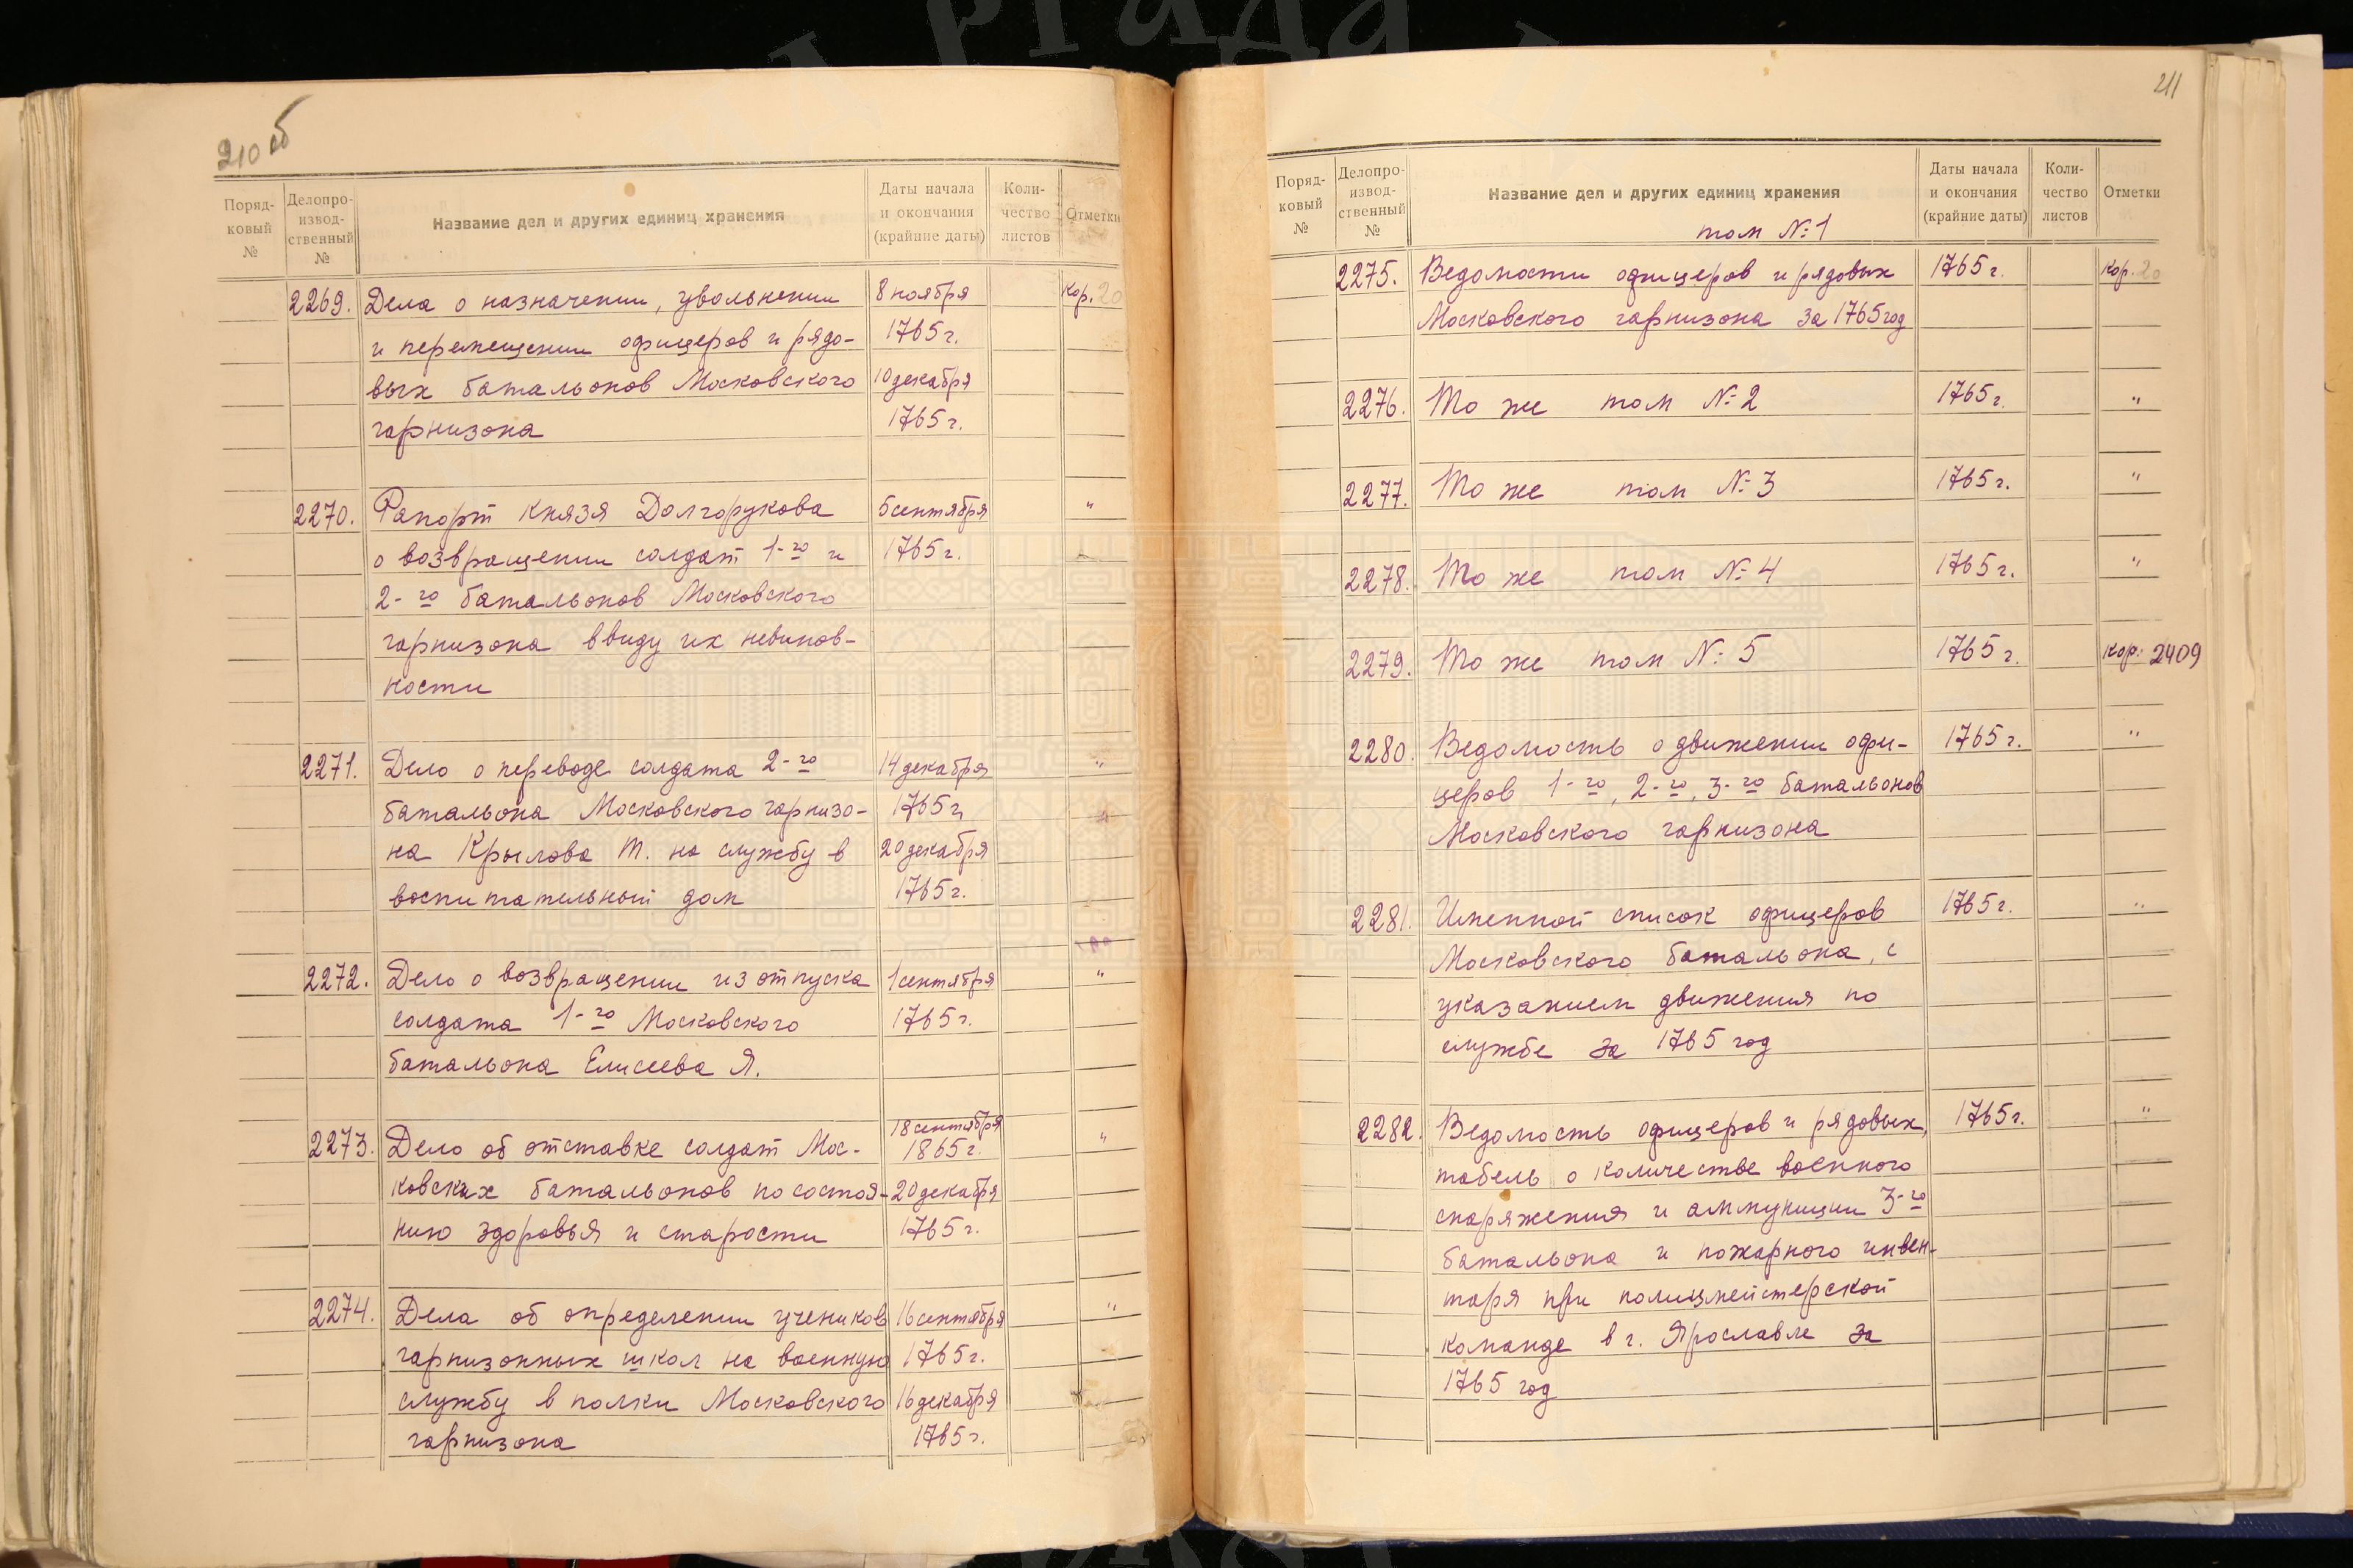 210 об
Поряд-
ковый
№
Делопро-
извод-
ственный
№
Название дел и других единиц хранения
Даты начала
и окончания
(крайние даты)
Коли-
чество
листов
Отметки
2269. Дела о назначении, увольнении 8 ноября кор. 20
и перемещении офицеров и рядо- 1765 г.
вых батальонов Московского 10 декабря
гарнизона 1765 г.
2270. Рапорт князя Долгорукова 5 сентября "
о возвращении солдат 1-го и 1765 г.
2-го батальонов Московского
гарнизона ввиду их невинов-
ности
2271. Дело о переводе солдата 2-го 14 декабря "
батальона Московского гарнизо- 1765 г.
на Крылова Т. на службу в 20 декабря
воспитательный дом 1765 г.
2272. Дело о возвращении из отпуска 1 сентября "
солдата 1-го Московского 1765 г.
батальона Елисеева Я.
2273. Дело об отставке солдат Мос- 18 сентября "
1865 г.
ковских батальонов по состоя- 20 декабря
нию здоровья и старости 1765 г.
2274. Дела об определении учеников 16 сентября "
гарнизонных школ на военную 1765 г.
службу в полки Московского 16 декабря
гарнизона 1765 г.
211
Поряд-
ковый
№
Делопро-
извод-
ственный
№
Название дел и других единиц хранения
Даты начала
и окончания
(крайние даты)
Коли-
чество
листов
Отметки
том № 1
2275. Ведомости офицеров и рядовых 1765 г. кор. 20
Московского гарнизона за 1765 год
2276. То же том № 2 1765 г. "
2277. То же том № 3 1765 г. "
2278. То же том № 4 1765 г. "
2279. То же том № 5 1765 г. кор. 2409
2280. Ведомость о движении офи- 1765 г. "
церов 1-го, 2-го, 3-го батальонов
Московского гарнизона
2281. Именной список офицеров 1765 г. "
Московского батальона, с
указанием движения по
службе за 1765 год
2282. Ведомость офицеров и рядовых, 1765 г. "
табель о количестве военного
снаряжения и аммуниции 3-го
батальона и пожарного инвен-
таря при полицмейстерской
команде в г. Ярославле за
1765 год